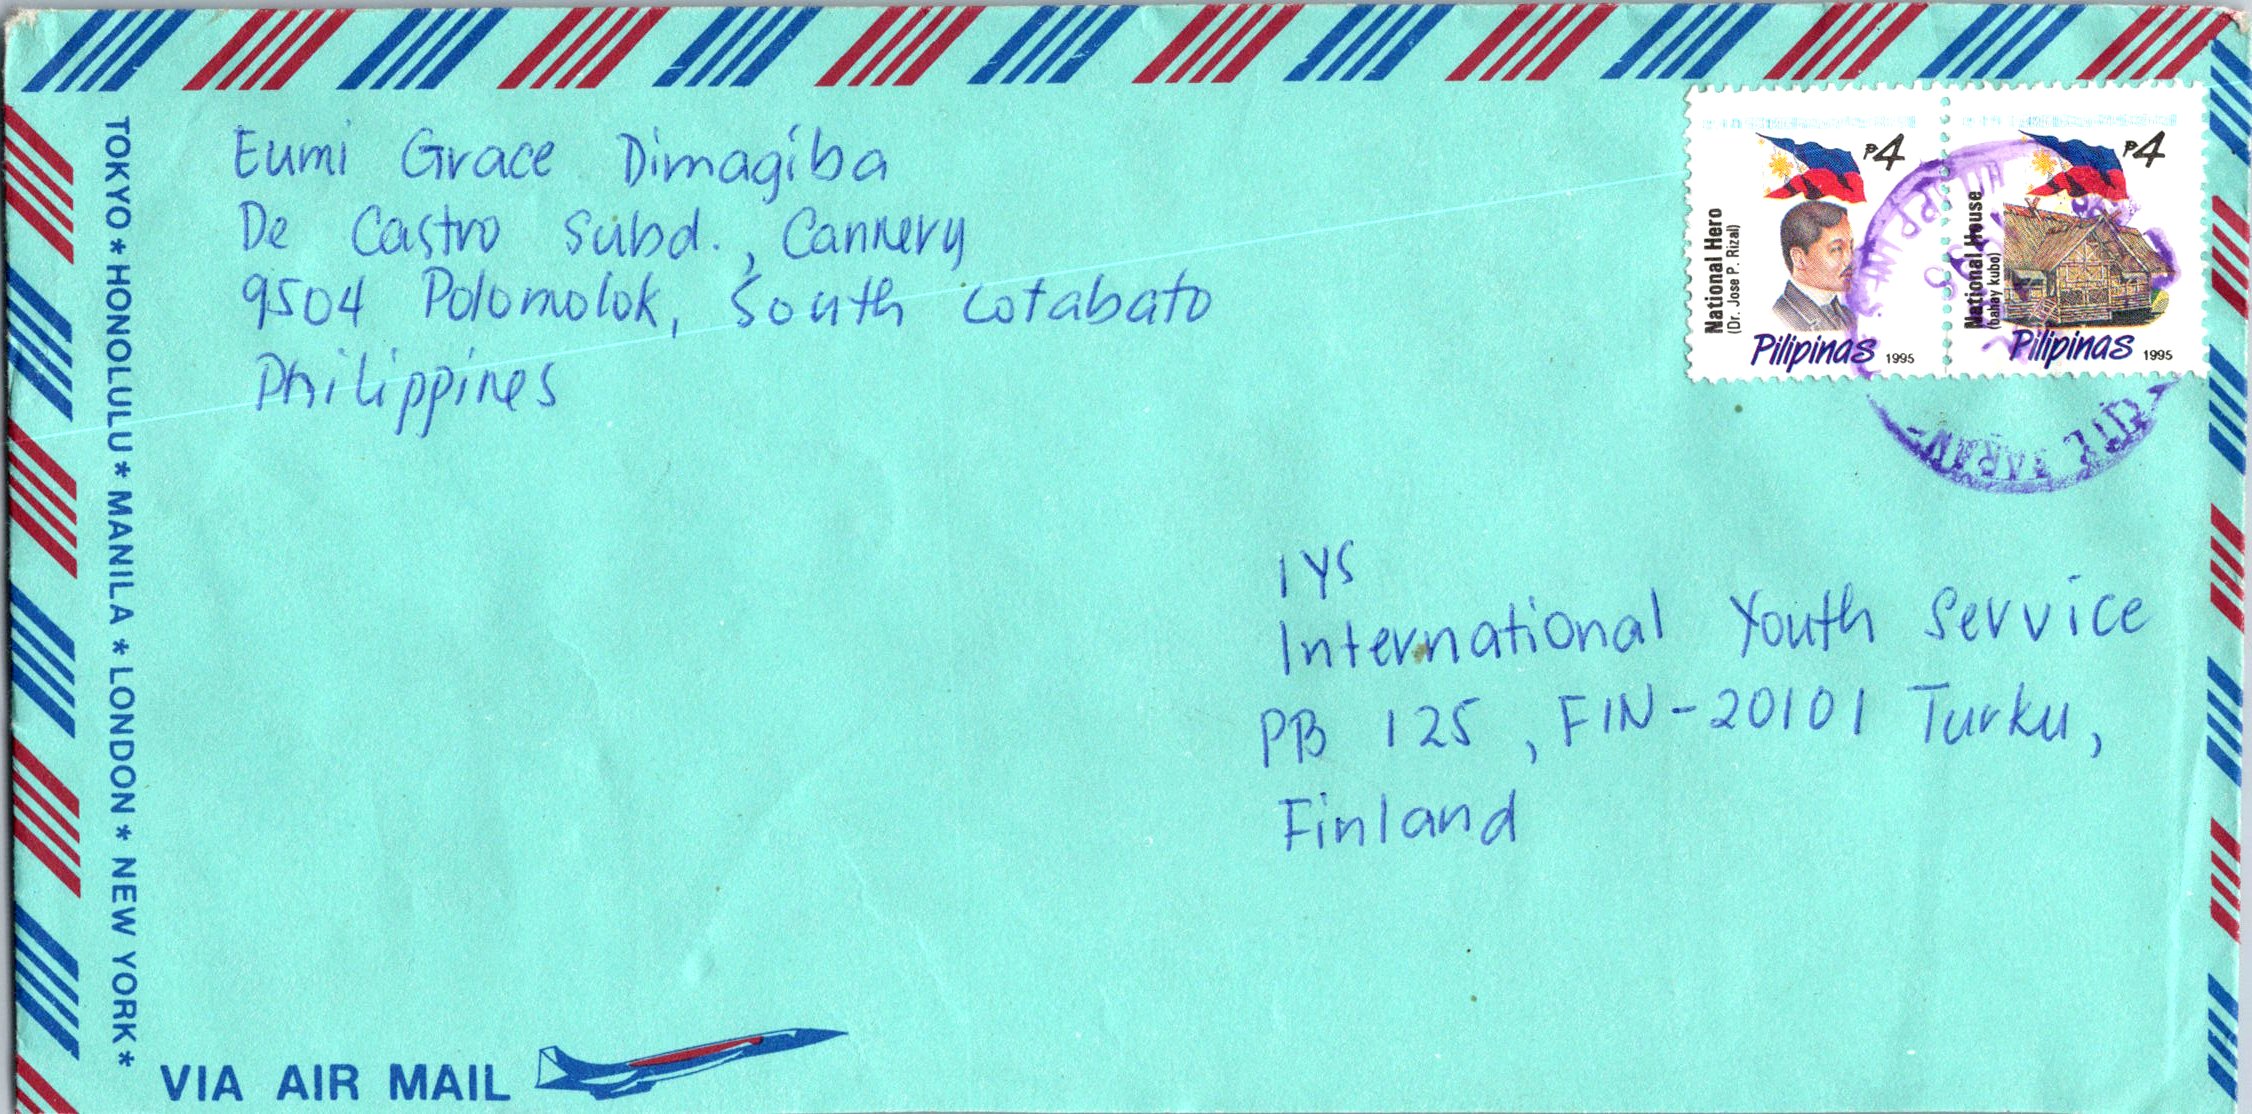 Eumi Grace Dimagiba
De Castro Subd., Cannery
9504 Polomolok, South Cotabato
Philippines
TOKYO * HONOLULU * MANILA * LONDON * NEW YORK *
₱4
National Hero
(Dr. Jose P. Rizal)
Pilipinas 1995
₱4
National House
(bahay kubo)
Pilipinas 1995
IYS
International Youth Service
PB 125, FIN-20101 Turku,
Finland
VIA AIR MAIL